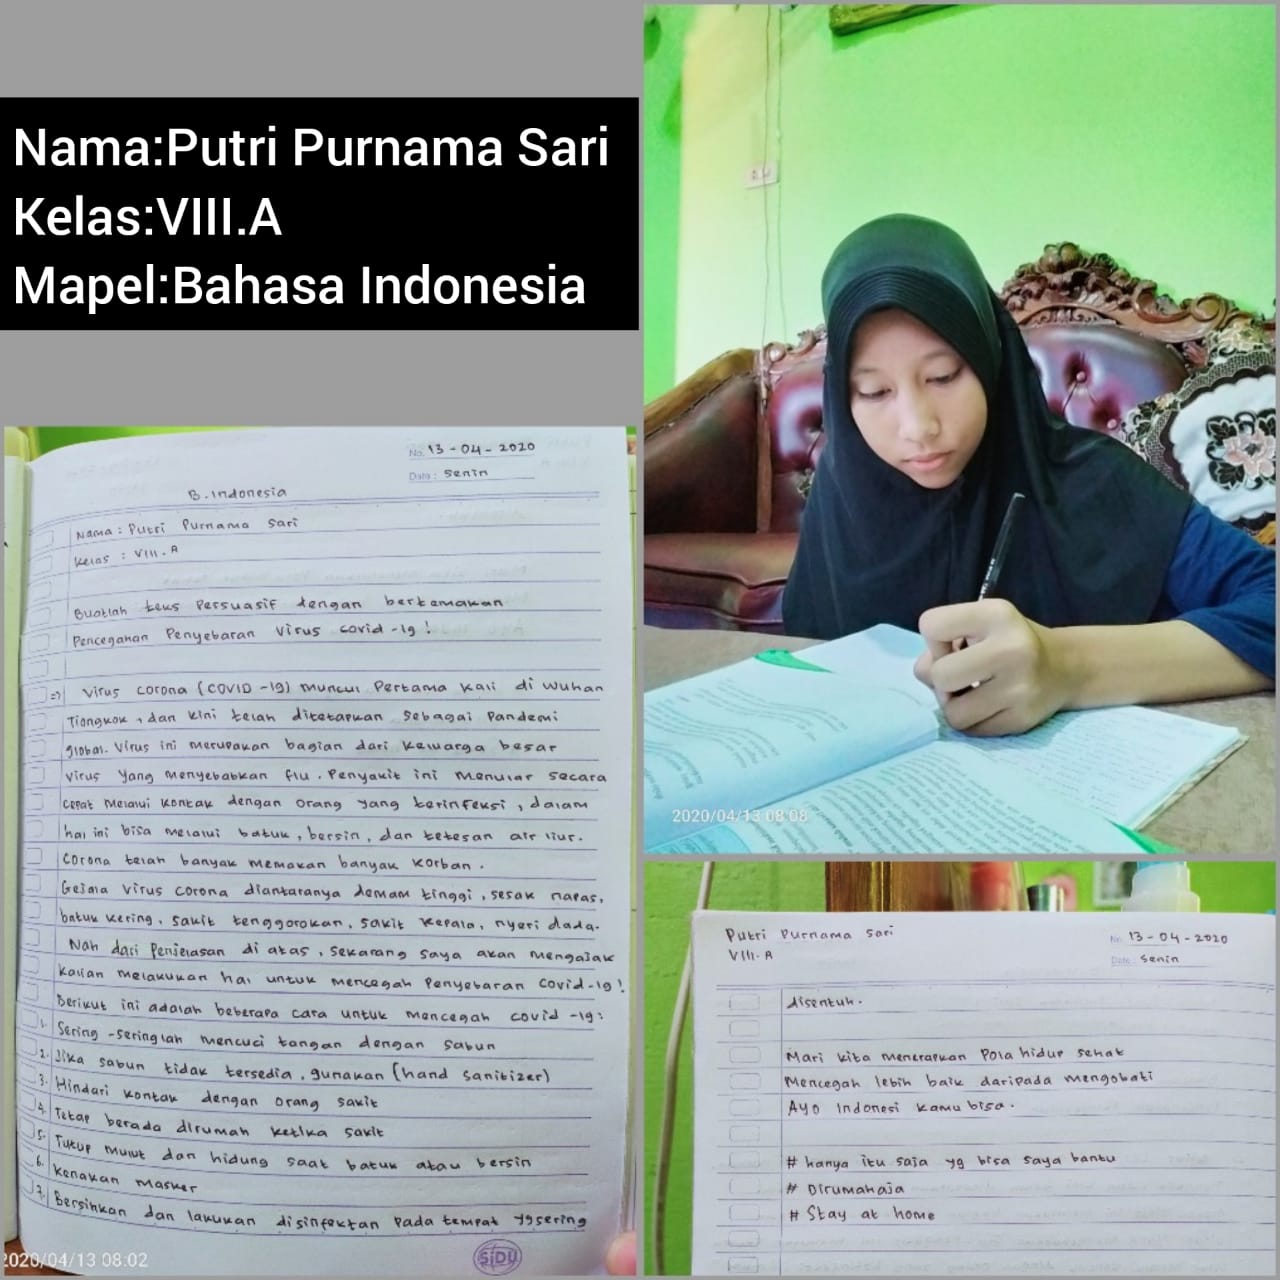 Nama:Putri Purnama Sari
Kelas:VIII.A
Mapel:Bahasa Indonesia
No. 13 - 04 - 2020
Date : Senin
B. Indonesia
Nama : Putri Purnama Sari
Kelas : VIII. A
Buatlah teks Persuasif dengan bertemakan
Pencegahan Penyebaran Virus covid-19!
=> Virus corona (COVID -19) muncul Pertama kali di Wuhan
Tiongkok, dan kini telah ditetapkan sebagai Pandemi
global. Virus ini merupakan bagian dari keluarga besar
Virus yang menyebabkan flu. Penyakit ini menular secara
cepat melalui kontak dengan orang yang terinfeksi, dalam
hal ini bisa melalui batuk, bersin, dan tetesan air liur.
Corona telah banyak memakan banyak korban.
Gejala Virus corona diantaranya demam tinggi, sesak napas,
batuk kering, sakit tenggorokan, sakit kepala, nyeri dada.
Nah dari Penjelasan di atas, sekarang saya akan mengajak
kalian melakukan hal untuk mencegah Penyebaran Covid-19!
Berikut ini adalah beberapa cara untuk mencegah covid -19:
1. Sering -seringlah mencuci tangan dengan sabun
2. Jika sabun tidak tersedia, gunakan (hand sanitizer)
3. Hindari kontak dengan orang sakit
4. Tetap berada dirumah ketika sakit
5. Tutup mulut dan hidung saat batuk atau bersin
6. Kenakan masker
7. Bersihkan dan lakukan disinfektan pada tempat yg sering
SIDU
2020/04/13 08:02
2020/04/13 08:08
Putri Purnama Sari
VIII. A
No. 13 - 04 - 2020
Date : Senin
disentuh.
Mari kita menerapkan Pola hidup sehat
Mencegah lebih baik daripada mengobati
Ayo Indonesi kamu bisa.
# hanya itu saja yg bisa saya bantu
# Dirumahaja
# Stay at home